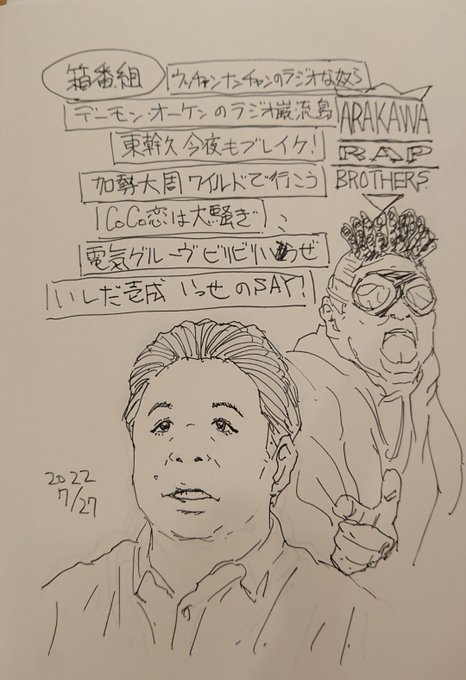 箱番組
ウッチャンナンチャンのラジオな奴ら
デーモン・オーケンのラジオ巌流島
東幹久 今夜もブレイク!
加勢大周 ワイルドで行こう
CoCo恋は大騒ぎ
電気グルーヴ ビリビリいくぜ
いしだ壱成 いっせのSAY!
ARAKAWA
RAP
BROTHERS
2022
7/27